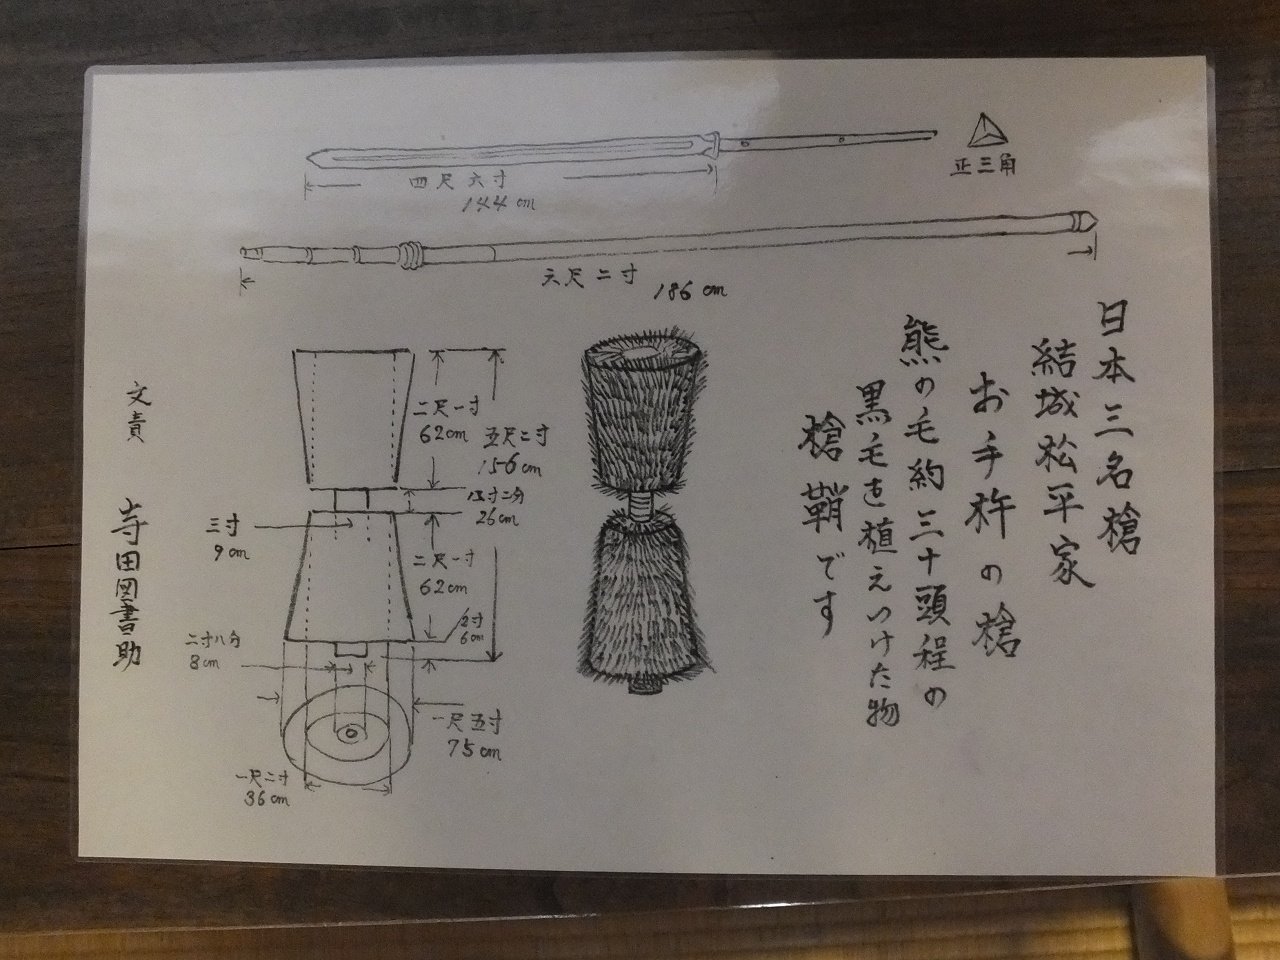 正三角
四尺六寸
144cm
六尺二寸
186cm
日本三名槍
結城松平家
お手杵の槍
熊の毛約三十頭程の
黒毛を植えつけた物
槍鞘です
二尺一寸
62cm
五尺二寸
156cm
26cm
三寸
9cm
二尺一寸
62cm
2寸
6cm
二寸八分
8cm
一尺五寸
75cm
一尺二寸
36cm
文責 寺田図書助